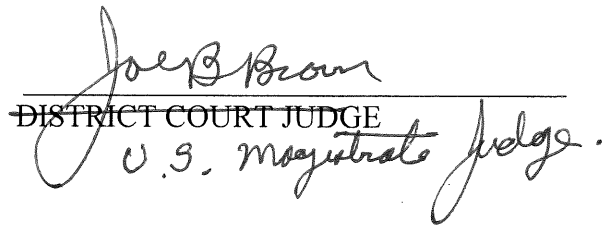 Joe B Brown
DISTRICT COURT JUDGE
U.S. Magistrate Judge.